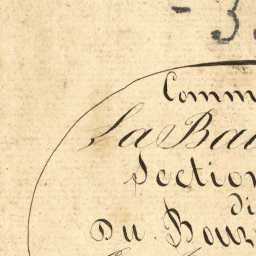 - 3
Comm
La Ba
Section
di
Du Bour